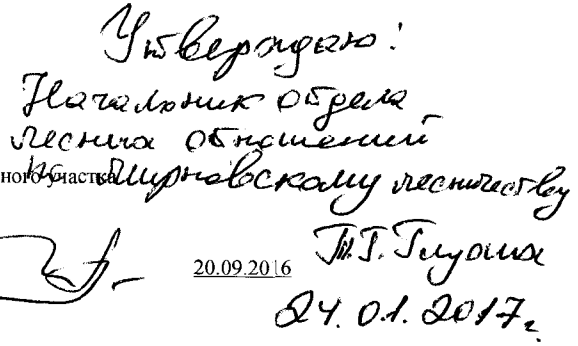 Утверждаю:
Начальник отдела
лесных отношений
ного участка по Мирновскому лесничеству
20.09.2016
24.01.2017г.